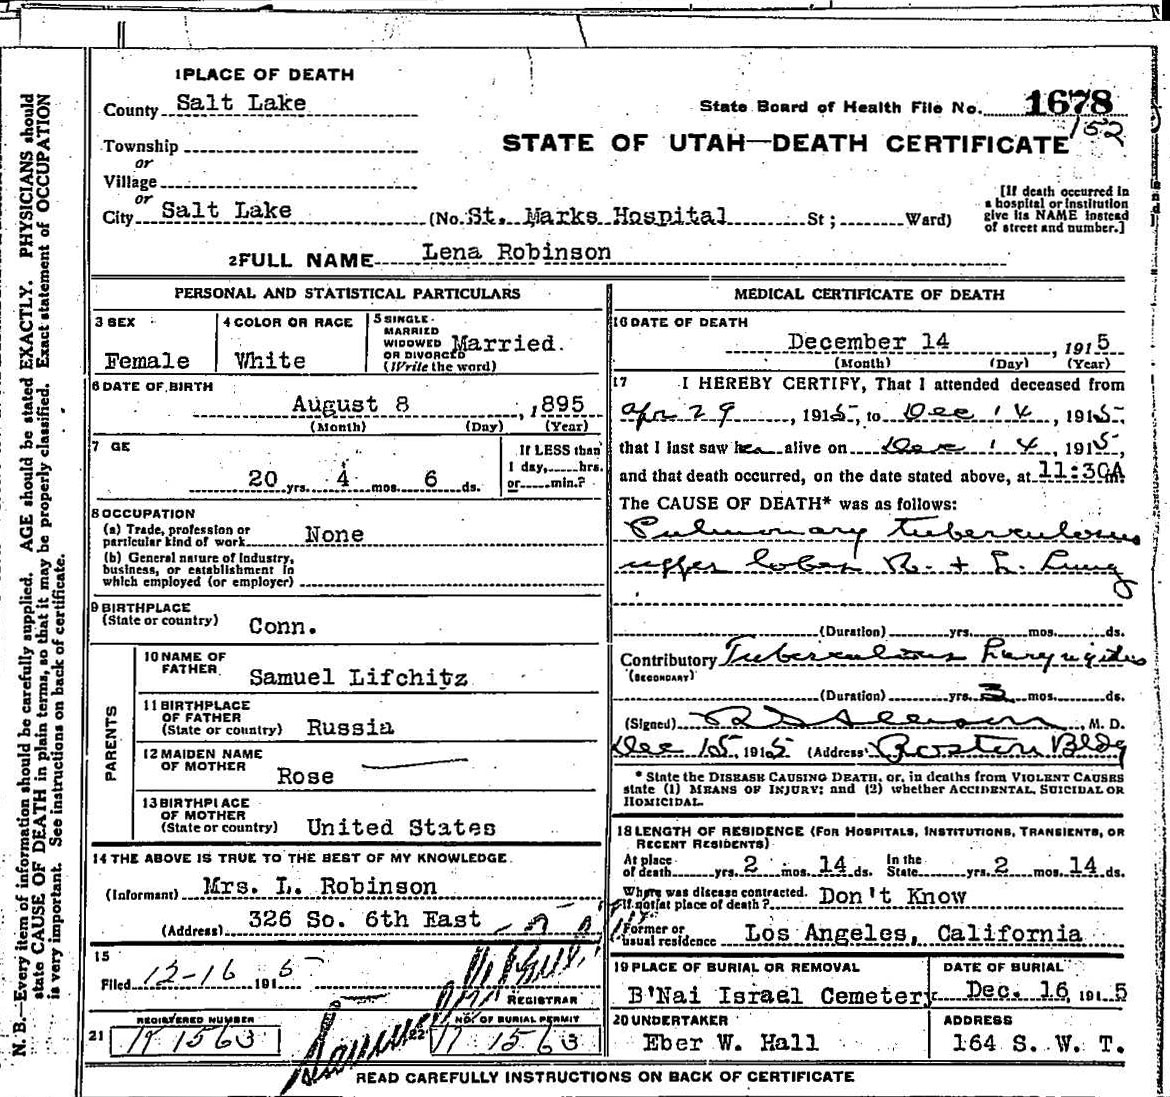 1 PLACE OF DEATH
County Salt Lake
State Board of Health File No. 1678
152
Township
or
STATE OF UTAH—DEATH CERTIFICATE
Village
or
City Salt Lake (No. St. Marks Hospital St; Ward)
[If death occurred in a hospital or institution give its NAME instead of street and number.]
2 FULL NAME Lena Robinson
PERSONAL AND STATISTICAL PARTICULARS
3 SEX
Female
4 COLOR OR RACE
White
5 SINGLE
MARRIED
WIDOWED
OR DIVORCED
(Write the word)
Married.
6 DATE OF BIRTH
August 8, 1895
(Month) (Day) (Year)
7 GE
20 yrs. 4 mos. 6 ds.
If LESS than
1 day, hrs.
or min.?
8 OCCUPATION
(a) Trade, profession or
particular kind of work None
(b) General nature of industry,
business, or establishment in
which employed (or employer)
9 BIRTHPLACE
(State or country) Conn.
PARENTS
10 NAME OF
FATHER Samuel Lifchitz
11 BIRTHPLACE
OF FATHER
(State or country) Russia
12 MAIDEN NAME
OF MOTHER Rose
13 BIRTHPLACE
OF MOTHER
(State or country) United States
14 THE ABOVE IS TRUE TO THE BEST OF MY KNOWLEDGE
(Informant) Mrs. L. Robinson
(Address) 326 So. 6th East
15
Filed 12-16 1915
REGISTRAR
21 REGISTERED NUMBER
1563
22 NO. OF BURIAL PERMIT
1563
MEDICAL CERTIFICATE OF DEATH
16 DATE OF DEATH
December 14, 1915
(Month) (Day) (Year)
17 I HEREBY CERTIFY, That I attended deceased from
Apr 29, 1915, to Dec 14, 1915,
that I last saw her alive on Dec 14, 1915,
and that death occurred, on the date stated above, at 11:30A m.
The CAUSE OF DEATH* was as follows:
Pulmonary Tuberculosis
upper lobes R. + L. Lung
(Duration) yrs. mos. ds.
Contributory Tuberculous Laryngitis
(SECONDARY)
(Duration) yrs. 3 mos. ds.
(Signed) M. D.
Dec 15, 1915 (Address) Boston Bldg
* State the DISEASE CAUSING DEATH, or, in deaths from VIOLENT CAUSES
state (1) MEANS OF INJURY; and (2) whether ACCIDENTAL, SUICIDAL OR
HOMICIDAL.
18 LENGTH OF RESIDENCE (FOR HOSPITALS, INSTITUTIONS, TRANSIENTS, OR
RECENT RESIDENTS)
At place
of death yrs. 2 mos. 14 ds. In the
State yrs. 2 mos. 14 ds.
Where was disease contracted.
If not at place of death? Don't Know
Former or
usual residence Los Angeles, California
19 PLACE OF BURIAL OR REMOVAL
B'Nai Israel Cemetery
DATE OF BURIAL
Dec. 16, 1915
20 UNDERTAKER
Eber W. Hall
ADDRESS
164 S. W. T.
READ CAREFULLY INSTRUCTIONS ON BACK OF CERTIFICATE
N. B.—Every item of information should be carefully supplied. AGE should be stated EXACTLY. PHYSICIANS should
state CAUSE OF DEATH in plain terms, so that it may be properly classified. Exact statement of OCCUPATION
is very important. See instructions on back of certificate.